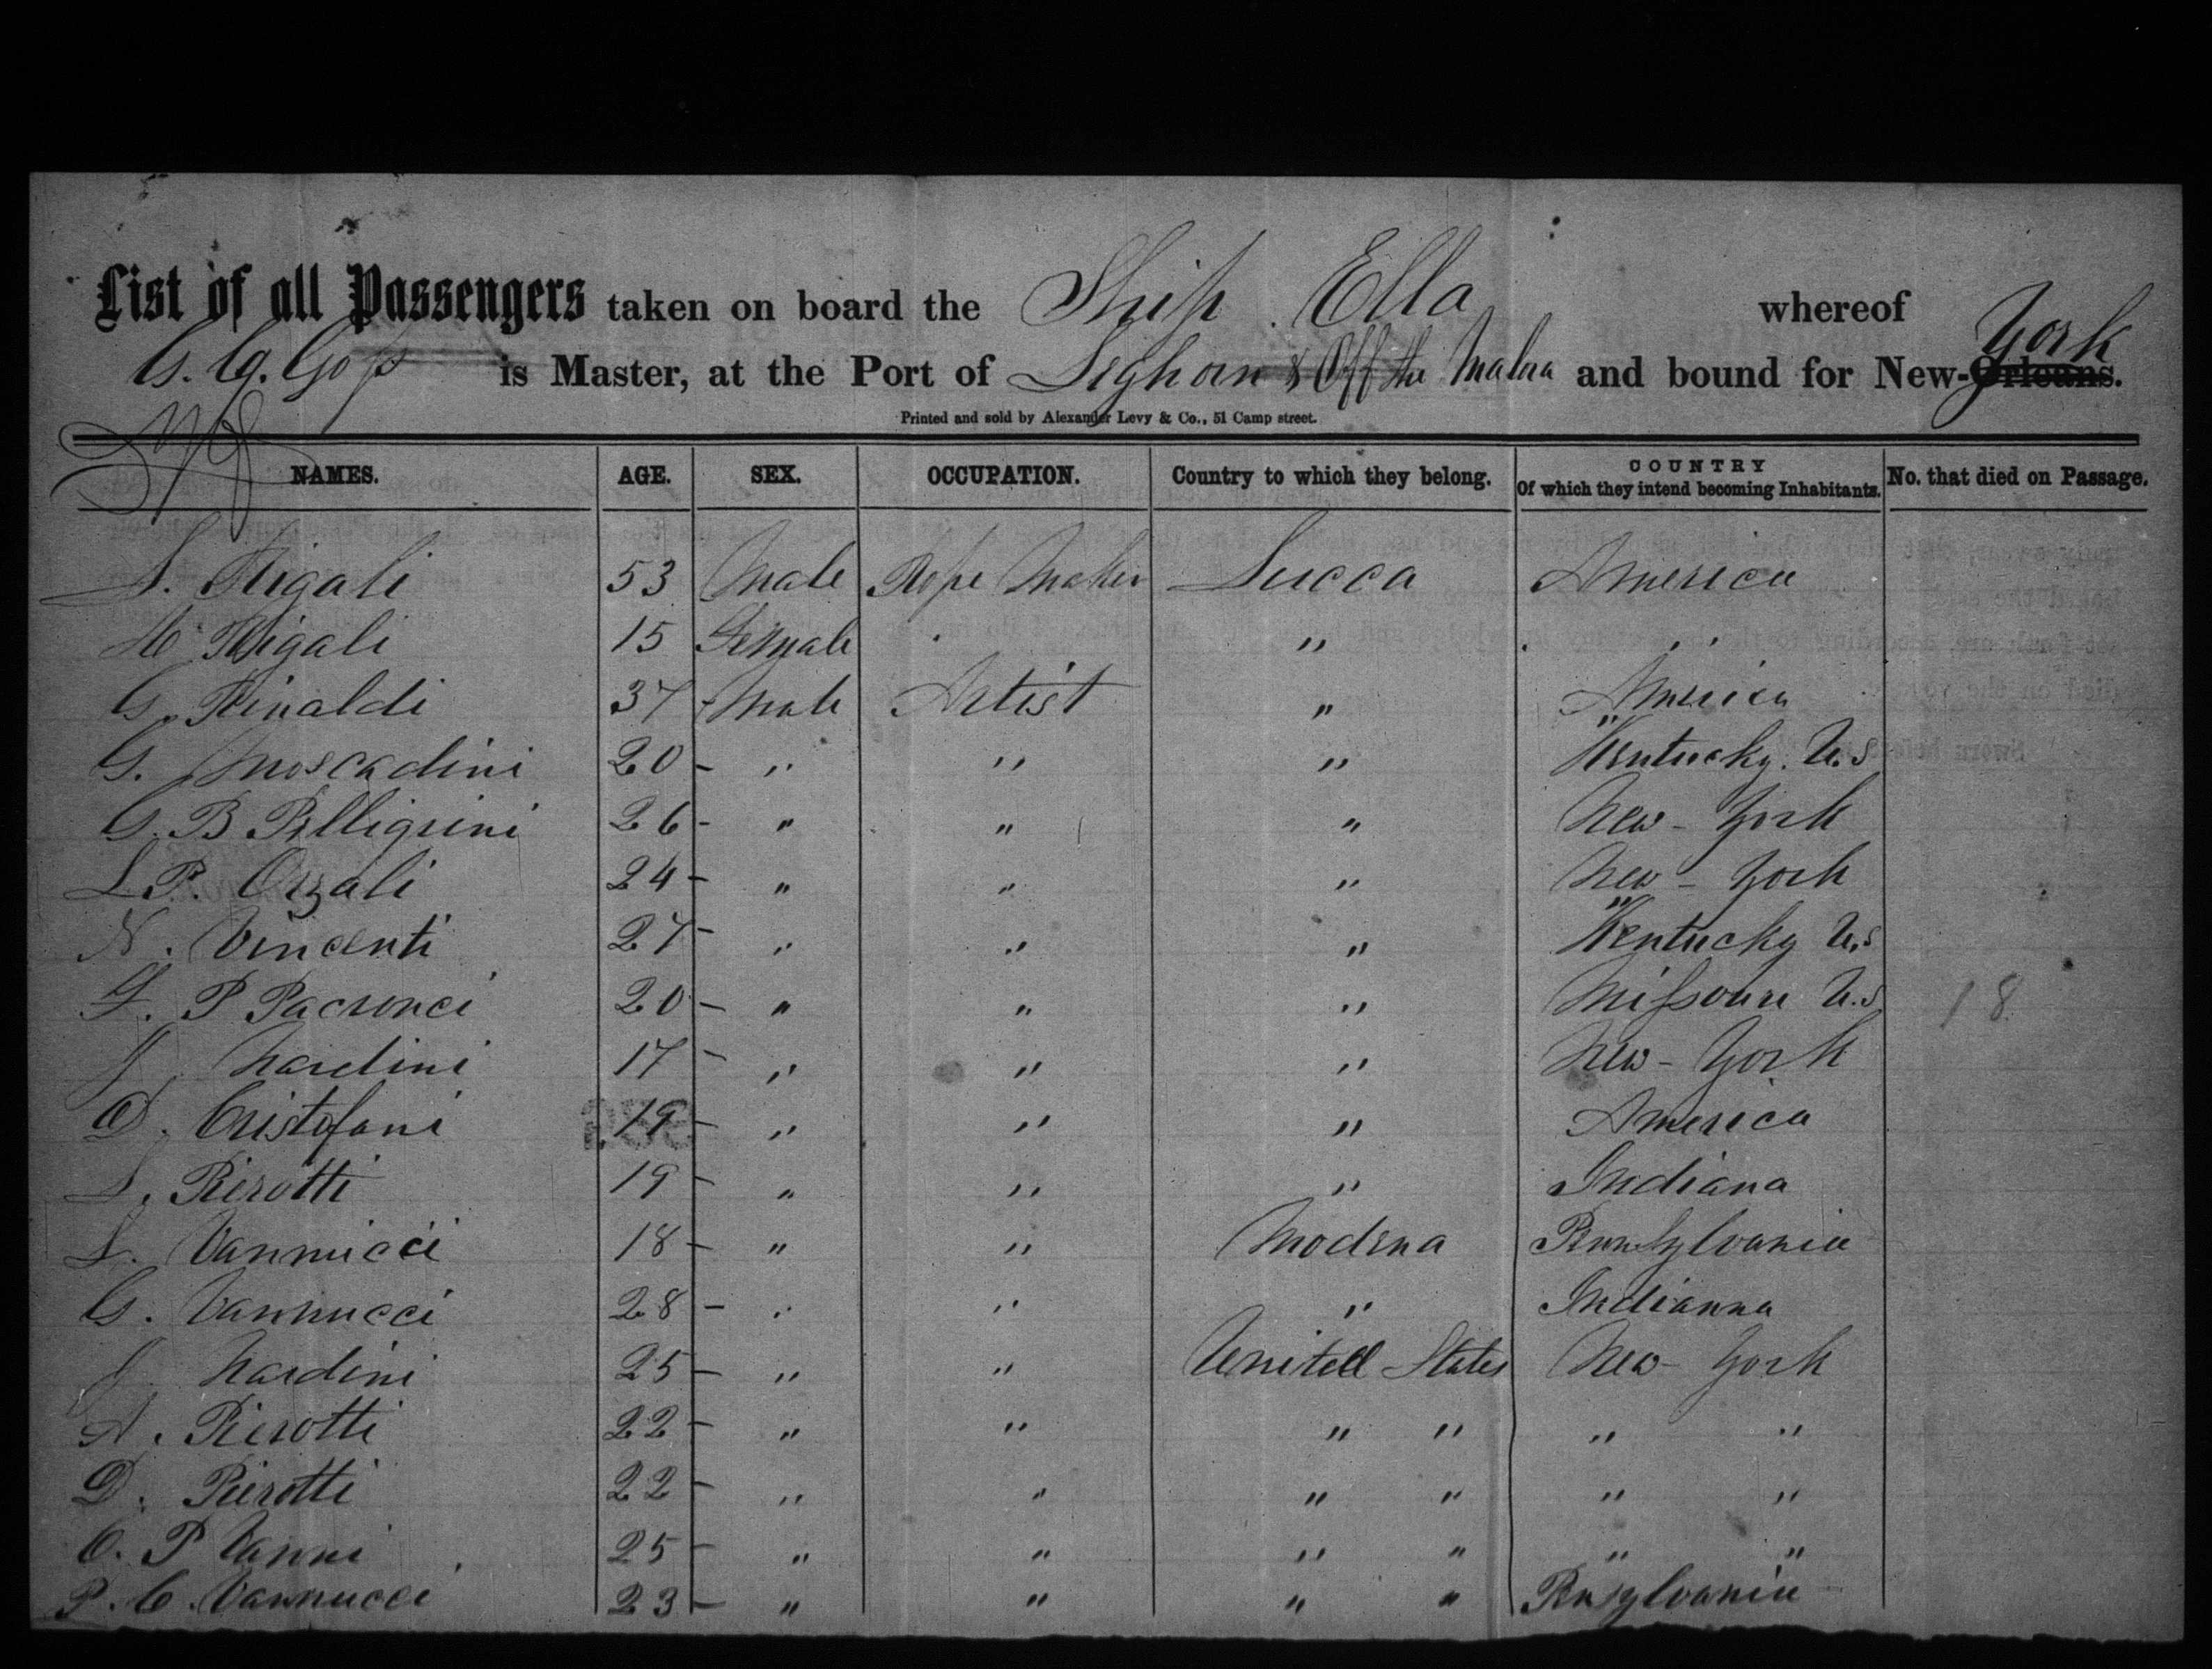 List of all Passengers taken on board the Ship Ella whereof
G. G. Goss is Master, at the Port of Leghorn & Off the and bound for New-Orleans. York
Printed and sold by Alexander Levy & Co., 51 Camp street.
NAMES. AGE. SEX. OCCUPATION. Country to which they belong. COUNTRY Of which they intend becoming Inhabitants. No. that died on Passage.
S. Rigali 53 Male Rope Maker Lucca America
M Rigali 15 Female " "
G. Rinaldi 37 Male Artist " America
G. Moscadini 20 - " " " Kentucky. U.S
G. B Pelligrini 26 - " " " New-York
L P. Orzali 24 - " " " New-York
N. Vincenti 27 - " " " Kentucky U.S
F. P Pacronci 20 - " " " Missouri U.S 18
J Nardini 17 - " " " New-York
D. Cristofani 19 - " " " America
S. Pierotti 19 - " " " Indiana
L. Vannucci 18 - " " Modena Pennsylvania
G. Vannucci 28 - " " " Indianna
J Nardini 25 - " " United States New-York
A. Pierotti 22 - " " " " " "
D. Pierotti 22 - " " " " " "
O. P Vanni 25 - " " " " " "
P. C. Vannucci 23 - " " " " Pensylvania